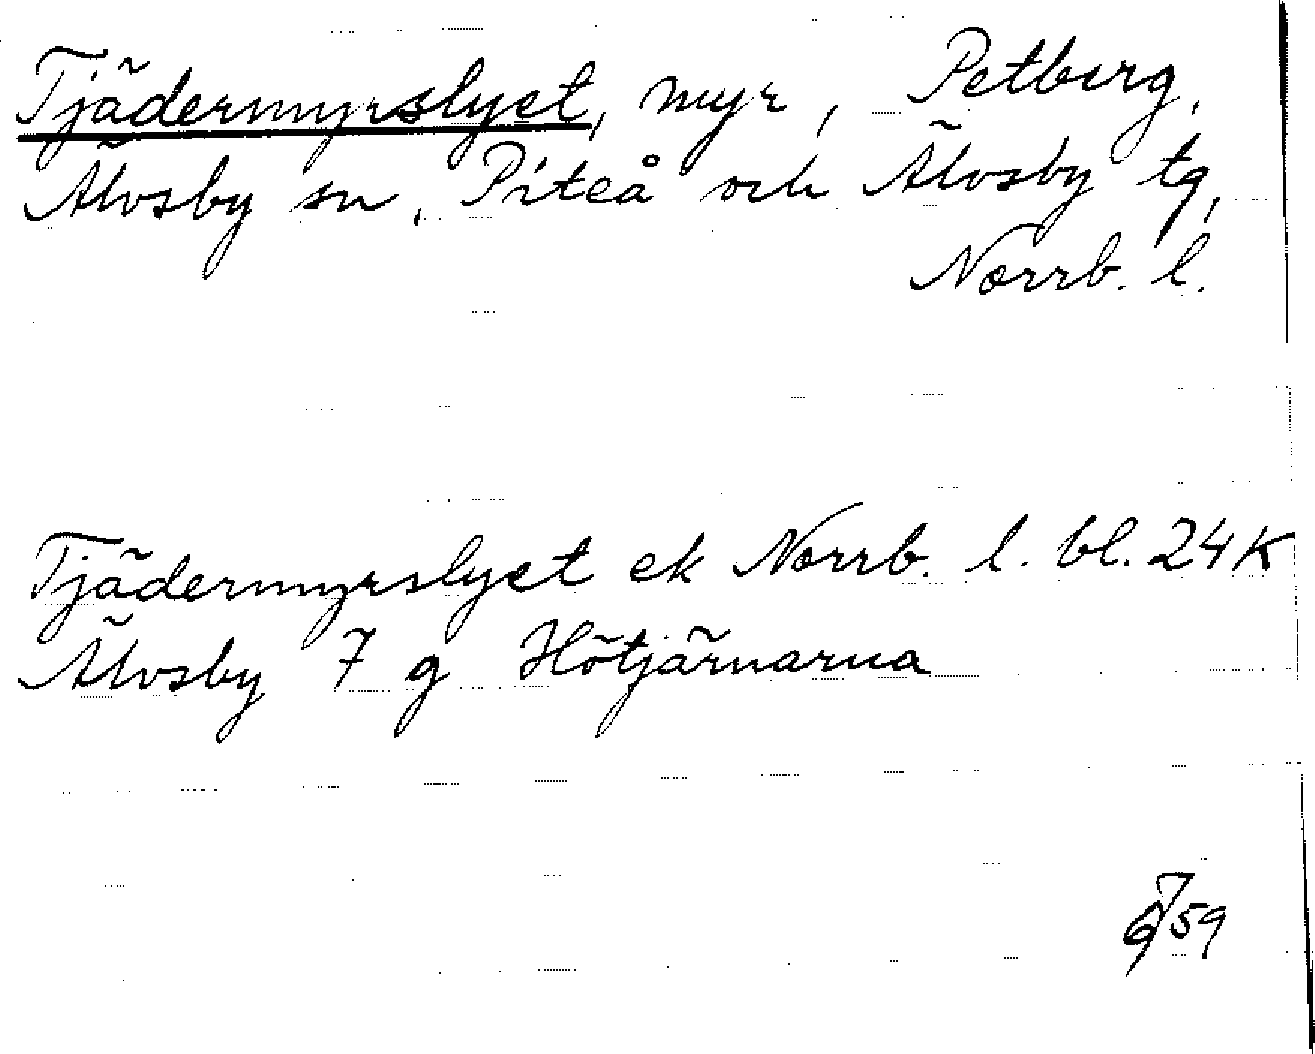 Tjädermyrslyet, myr, Petberg,
Älvsby sn, Piteå och Älvsby tg,
Norrb. l.
Tjädermyrslyet ek Norrb. l. bl. 24K
Älvsby 7 g Hötjärnarna